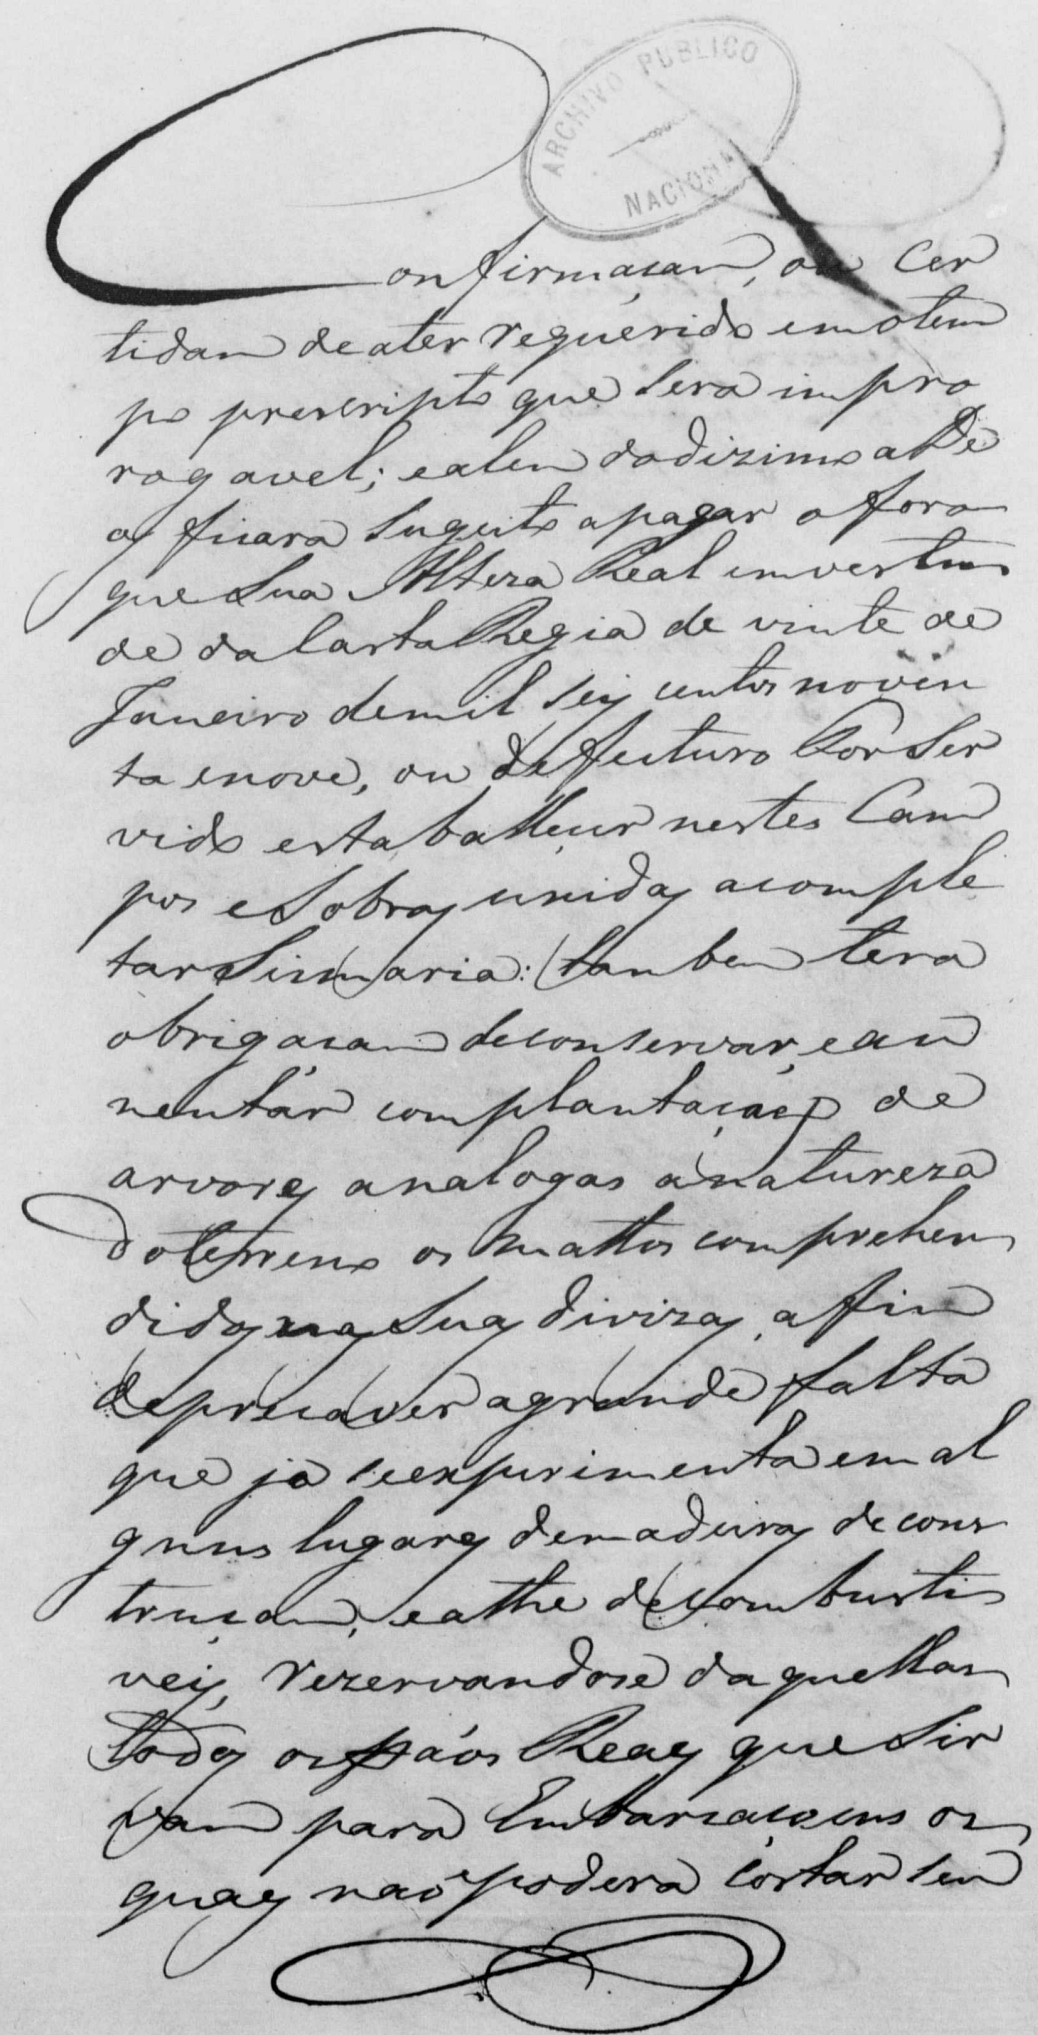 ARCHIVO PUBLICO
NACIONAL
Confirmaçam, ou Cer
tidam de ater requerido em o tem
po prescripto que sera impro
rogavel; e alem do dizimo a De
os ficara sugeito a pagar o foro
que Sua Alteza Real em vertu
de da Carta Regia de vinte de
Janeiro de mil seis centos noven
ta e nove, ou de fecturo for ser
vido estaballeçer nestes Cam
pos e Sobras unidas a comple
tar Sismaria: tambem tera
obrigaçam de conservar, e au
mentar com plantaçaes de
arvores analogas à natureza
do terreno os mattos comprehen
didos nas suas divizas, affim
de precaver a grande falta
que ja se experimenta em al
guns lugares de madeiras de cons
truçam, e athe de combusti
veis, rezervandose daquellas
todos os páos Reaes que sir
vam para Embarcaçoens os
quaes naõ podera cortar sem